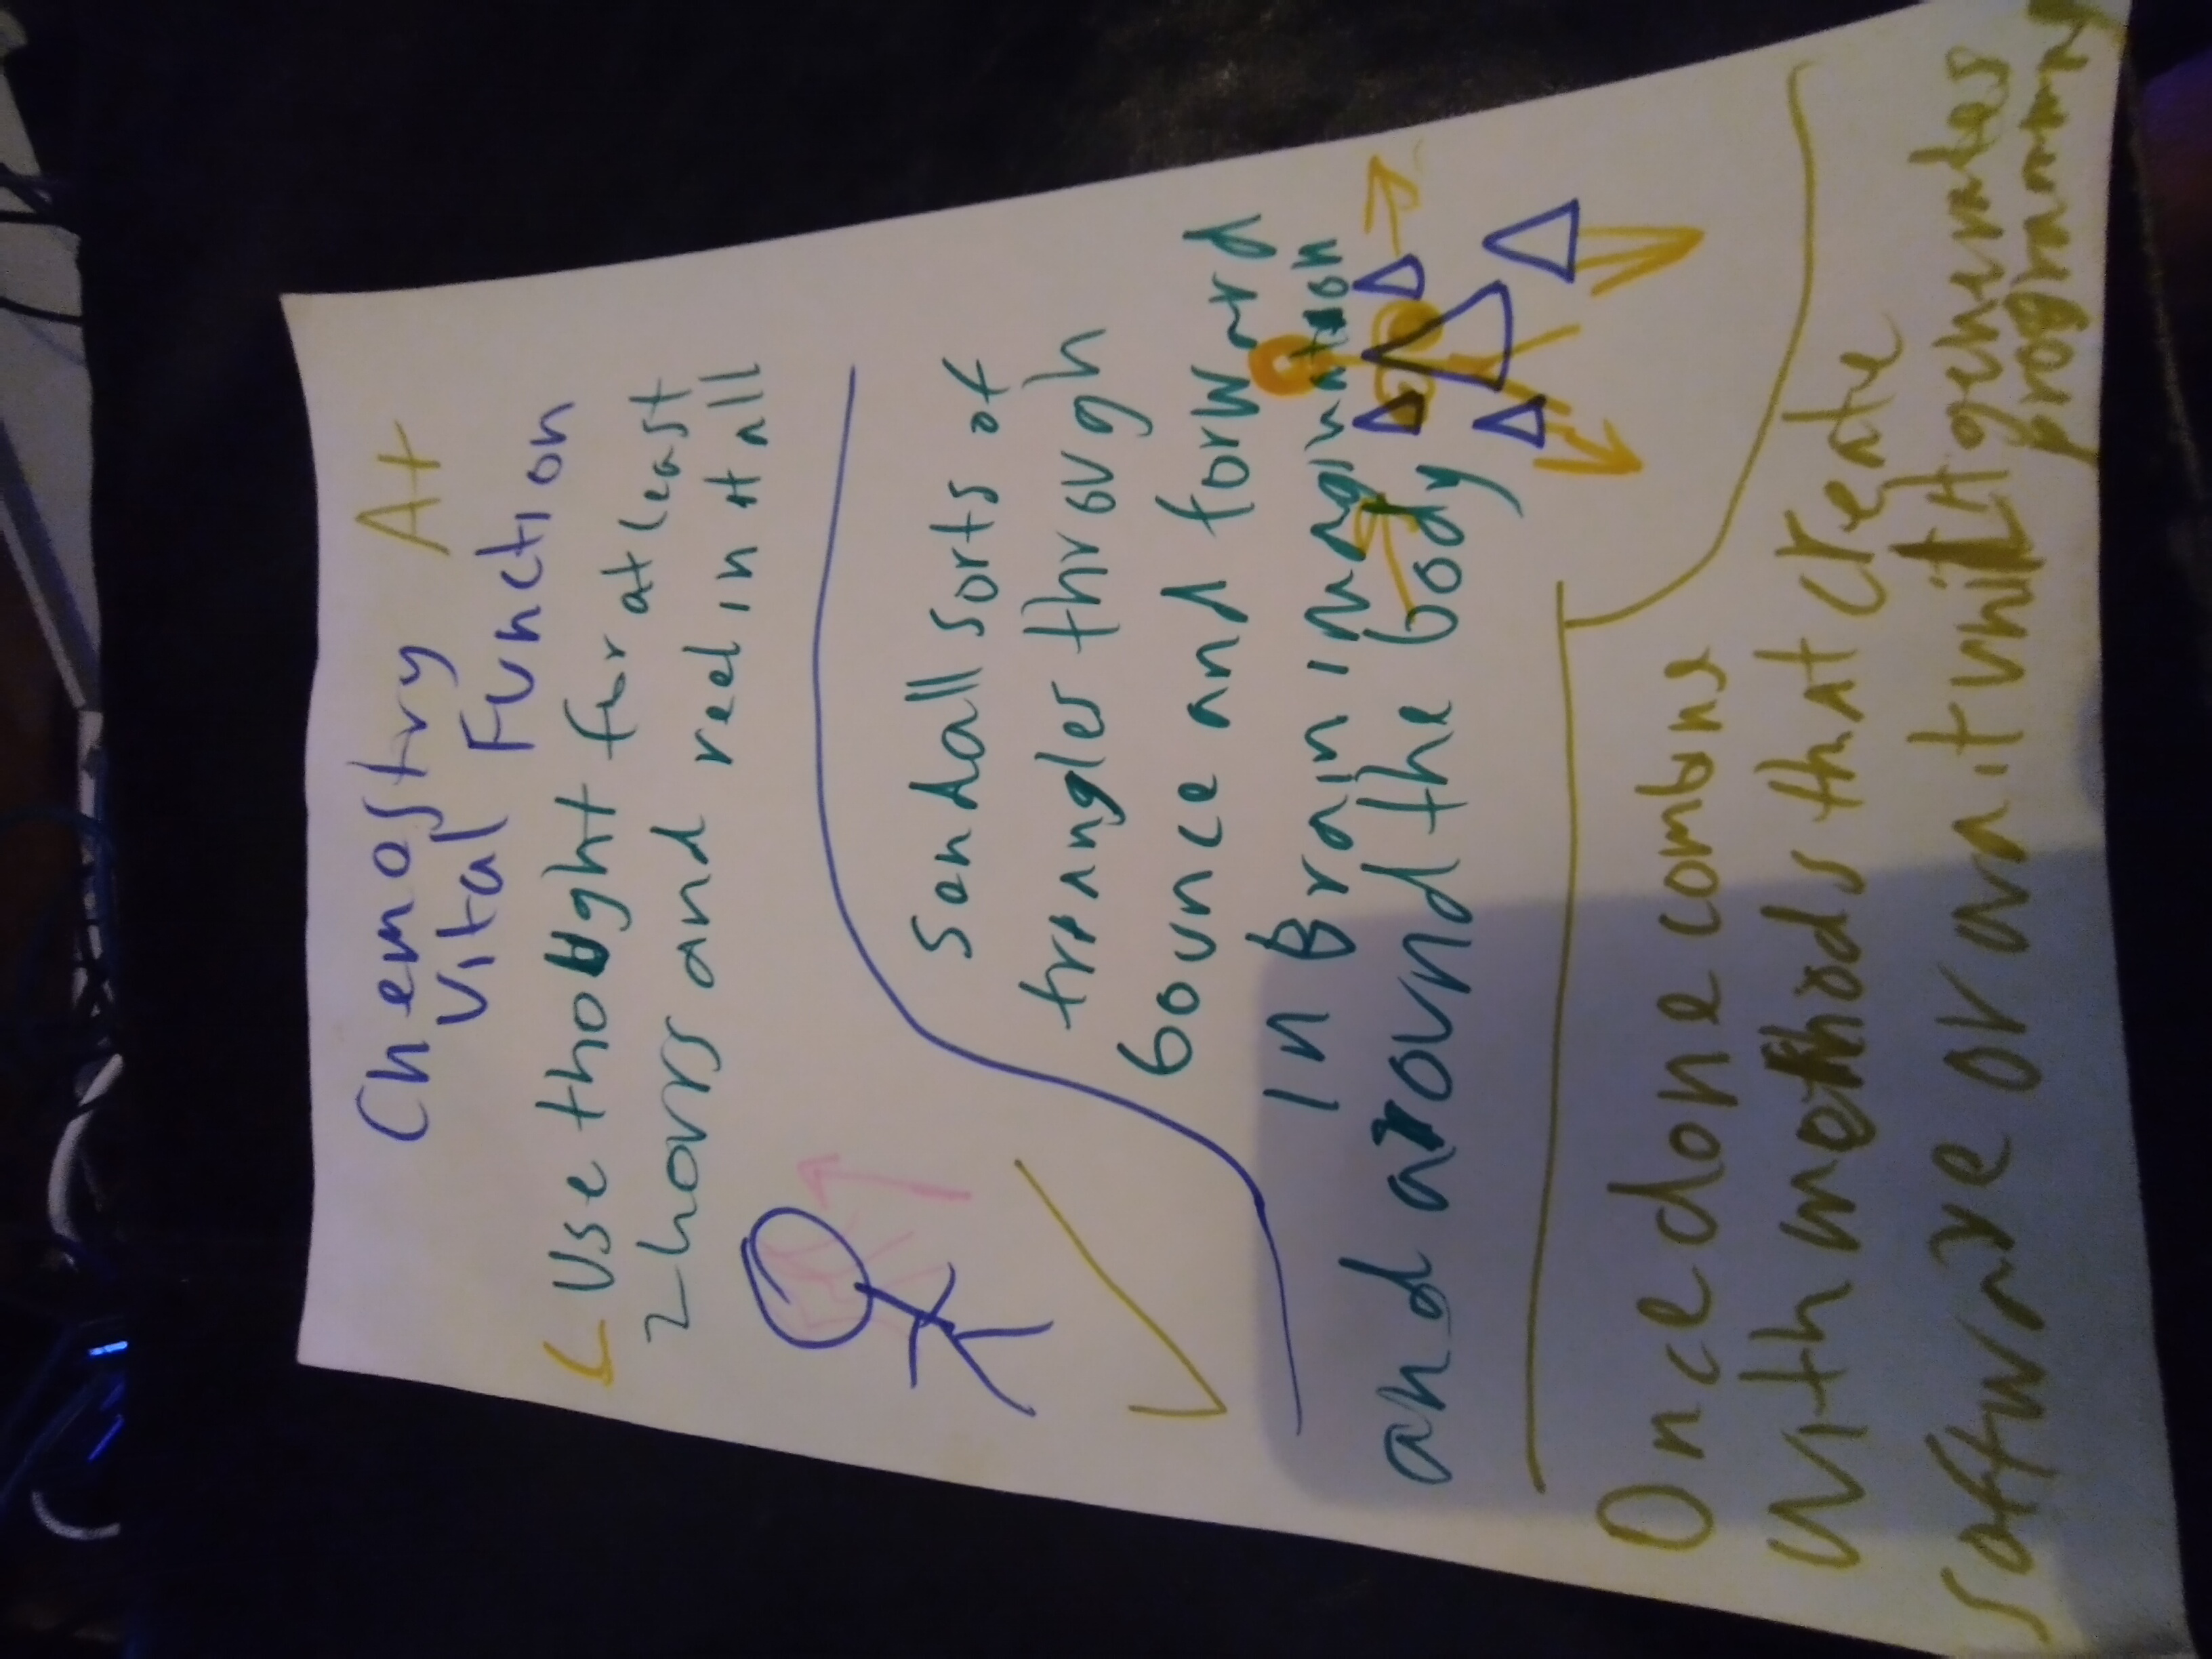 Chemostry A+
Vital Function
Use thought for at least
2 hours and reel in it all
send all sorts of
triangles through
bounce and form
in brain imagination
and around the body
Once done combine
with methods that create
software or wait until it generates
programming